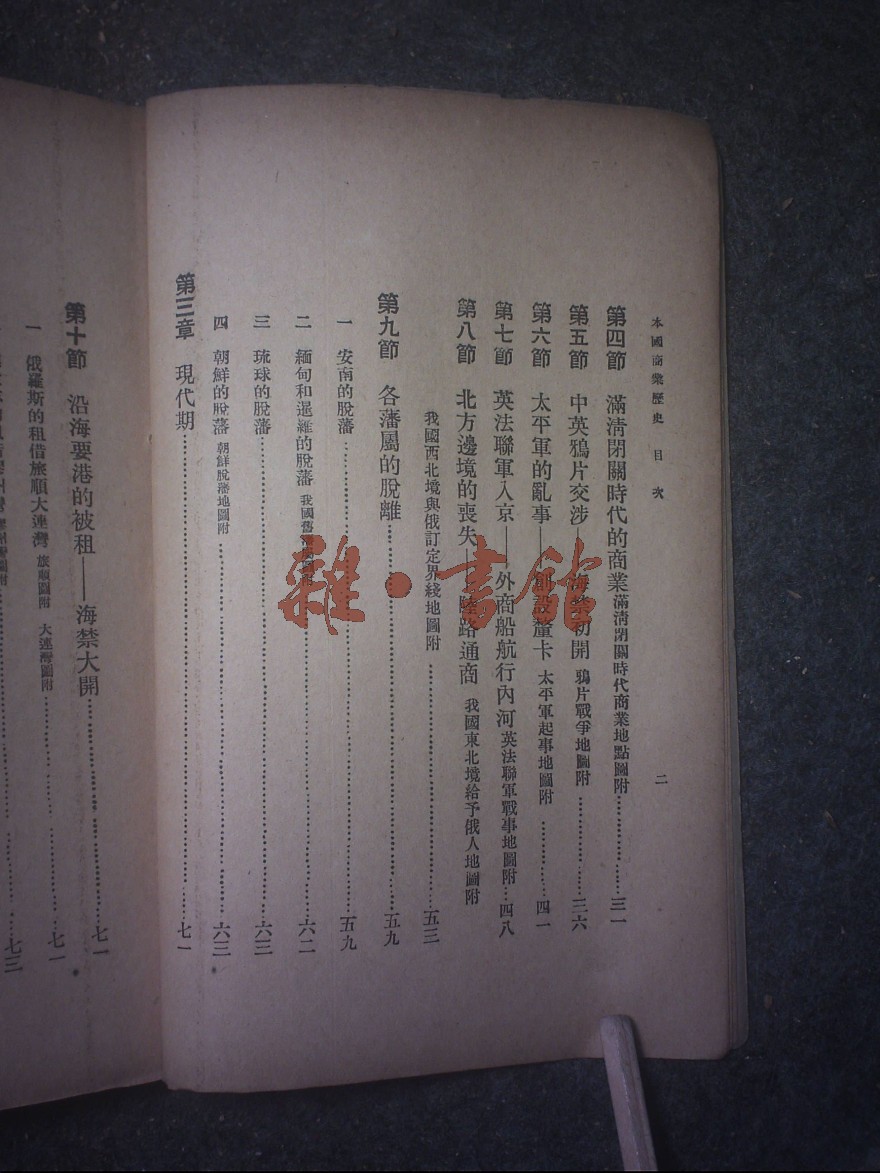 本國商業歷史 目次 二
第四節 滿清閉關時代的商業 滿清閉關時代商業地點圖附……三一
第五節 中英鴉片交涉——海禁初開 鴉片戰爭地圖附……三六
第六節 太平軍的亂事——創設釐卡 太平軍起事地圖附……四一
第七節 英法聯軍入京——外商船航行內河 英法聯軍戰事地圖附…四八
第八節 北方邊境的喪失——陸路通商 我國東北境給予俄人地圖附
我國西北境與俄訂定界綫地圖附……五三
第九節 各藩屬的脫離……五九
一 安南的脫藩……五九
二 緬甸和暹羅的脫藩 我國舊……六二
三 琉球的脫藩……六三
四 朝鮮的脫藩 朝鮮脫藩地圖附……六三
第三章 現代期……七一
第十節 沿海要港的被租——海禁大開……七一
一 俄羅斯的租借旅順大連灣 旅順圖附 大連灣圖附……七一
七三
雜·書館